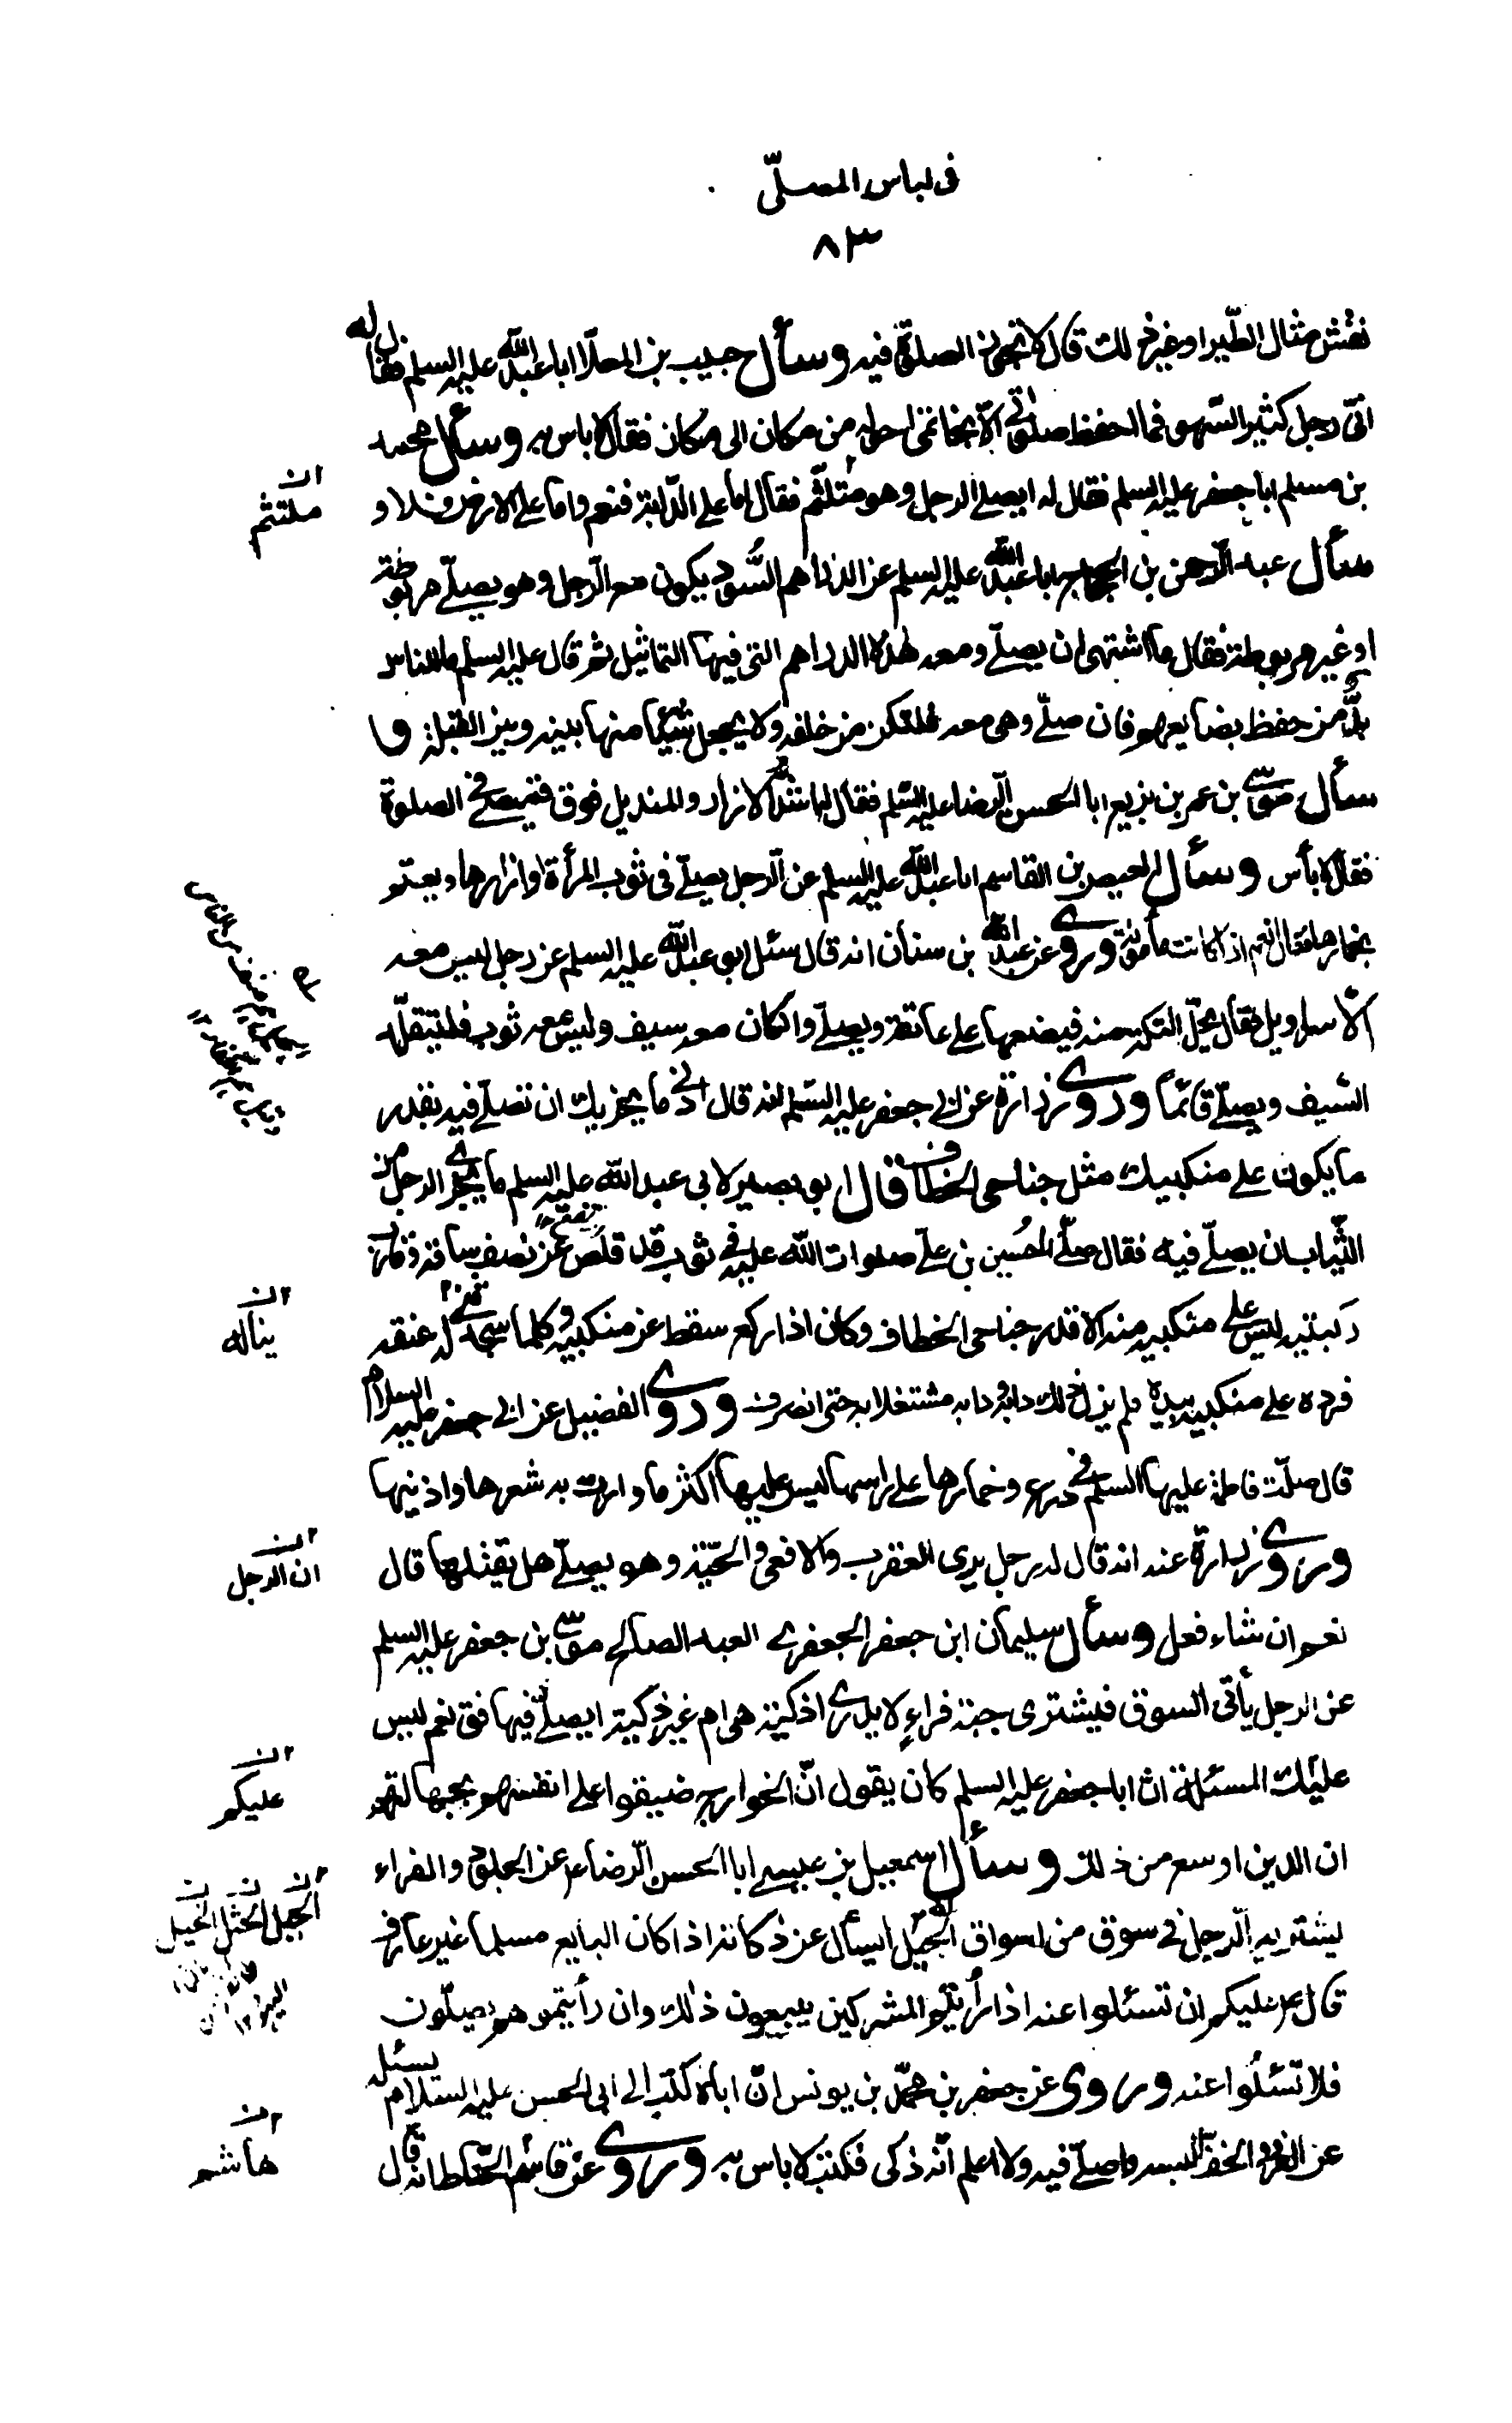 فى لباس المصلّى
٨٣
نقش مثال الطّير او غير ذلك قال لا تجوز الصلوة فيه وسأل حبيب بن المعلّا ابا عبد الله عليه السلم فقال له
انّى رجل كثير السّهو فما احفظ صلوتى الّا بخاتمى احوله من مكان الى مكان فقال لا باس به وسأل محمد
بن مسلم ابا جعفر عليه السلم فقال له ايصلے الرجل وهو متلثّم فقال اما على الدّابة فنعم واما على الارض فلا و
ملتثم
سأل عبد الرّحمن بن الحجاج ابا عبد الله عليه السلم عن الدراهم السُّود يكون مع الرّجل وهو يصلّے مربوطة
او غير مربوطة فقال ما اشتهى ان يصلّے ومعه هذه الدراهم التى فيها التماثيل ثم قال عليه السلم ما للناس
بدٌّ من حفظ بضايعهم فان صلّے وهى معه فلتكن من خلفه ولا يجعل شيئًا منها بينه وبين القبلة و
سأل موسى بن عمر بن بزيع ابا الحسن الرّضا عليه السّلم فقال له اشدّ الازار والمنديل فوق قميصے فى الصلوة
فقال لا بأس وسأل العيص بن القاسم ابا عبد الله عليه السلم عن الرّجل يصلّے فى ثوب المرأة او ازارها ويعتم
بخمارها فقال نعم اذا كانت مأمونة وروى عن عبد الله بن سنان انه قال سئل ابو عبد الله عليه السلم عن رجل ليس معه
الّا سراويل فقال يحلّ التكة منه فيضعها على عاتقه ويصلّے وان كان معه سيف وليس معه ثوب فليتقلّد
السّيف ويصلّے قائمًا وروى زرارة عن ابى جعفر عليه السّلم انه قال ادنى ما يجزيك ان تصلّے فيه بقدر
ما يكون على منكبيك مثل جناحى الخطاف وقال ابو بصير لابى عبد الله عليه السلم ما يجزى الرجل من
الثّياب ان يصلّے فيه فقال صلّے الحُسين بن علىّ صلوات الله عليه فى ثوب قد قلص عن نصف ساقه وقارب
ركبتيه ليس على منكبيه منه الا قدر جناحى الخطاف وكان اذا ركع سقط عن منكبيه وكلما سجد له عنقه
يناله
فرده على منكبيه بيده فلم يزل ذلك دابه ودابه مشتغلا به حتى انصرف وروى الفضيل عن ابى جعفر عليه السلام
قال صلّت فاطمة عليها السلم فى درع وخمارها على راسها ليس عليها اكثر ما وارت به شعرها واذنيها
وروى زرارة عنه انه قال له رجل يرى العقرب والافعى والحيّة وهو يصلّے هل يقتلها قال
ان الرجل
نعم ان شاء فعل وسأل سليمان ابن جعفر الجعفرى العبد الصالح موسى بن جعفر عليه السلم
عن الرجل يأتى السوق فيشترى جبة فراءٍ لا يدرى اذكية هى ام غير ذكية ايصلّے فيها فق نعم ليس
عليك المسئلة ان ابا جعفر عليه السلم كان يقول انّ الخوارج ضيقوا على انفسهم بجهالتهم
عليكم
ان الدين اوسع من ذلك وسأل اسمعيل بن عيسى ابا الحسن الرّضا ع عن الجلود والفراء
يشتريه الرّجل فى سوق من اسواق الجبل ايسأل عن ذكاته اذا كان البايع مسلما غير عارف
الجبل الخيل
قال ع عليكم ان تسئلوا عنه اذا رأيتم المشركين يبيعون ذلك وان رأيتم هم يصلّون
فلا تسئلوا عنه وروى عن جعفر بن محمّد بن يونس انّ اباه كتب الى ابى الحسن عليه السّلام يسئله
عن الفرو والخفّ البسه واصلّے فيه ولا اعلم انّه ذكى فكتب لا باس به وروى عن قاسم الحناط انه قال
هاشم